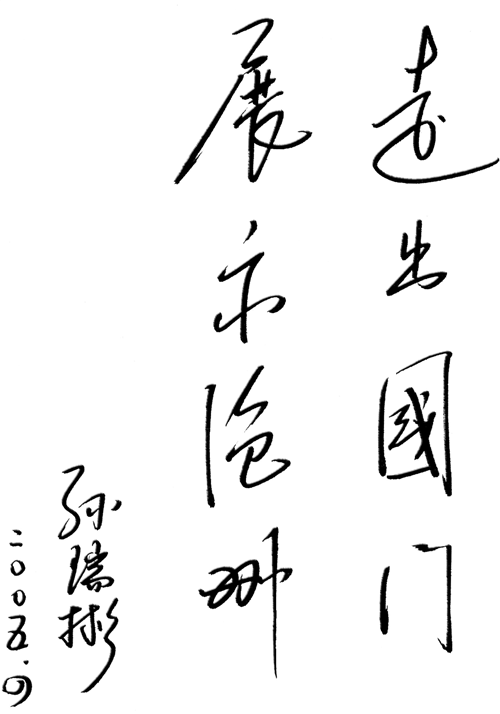 走出國门
展示沧州
孙瑞彬
二〇〇五.四